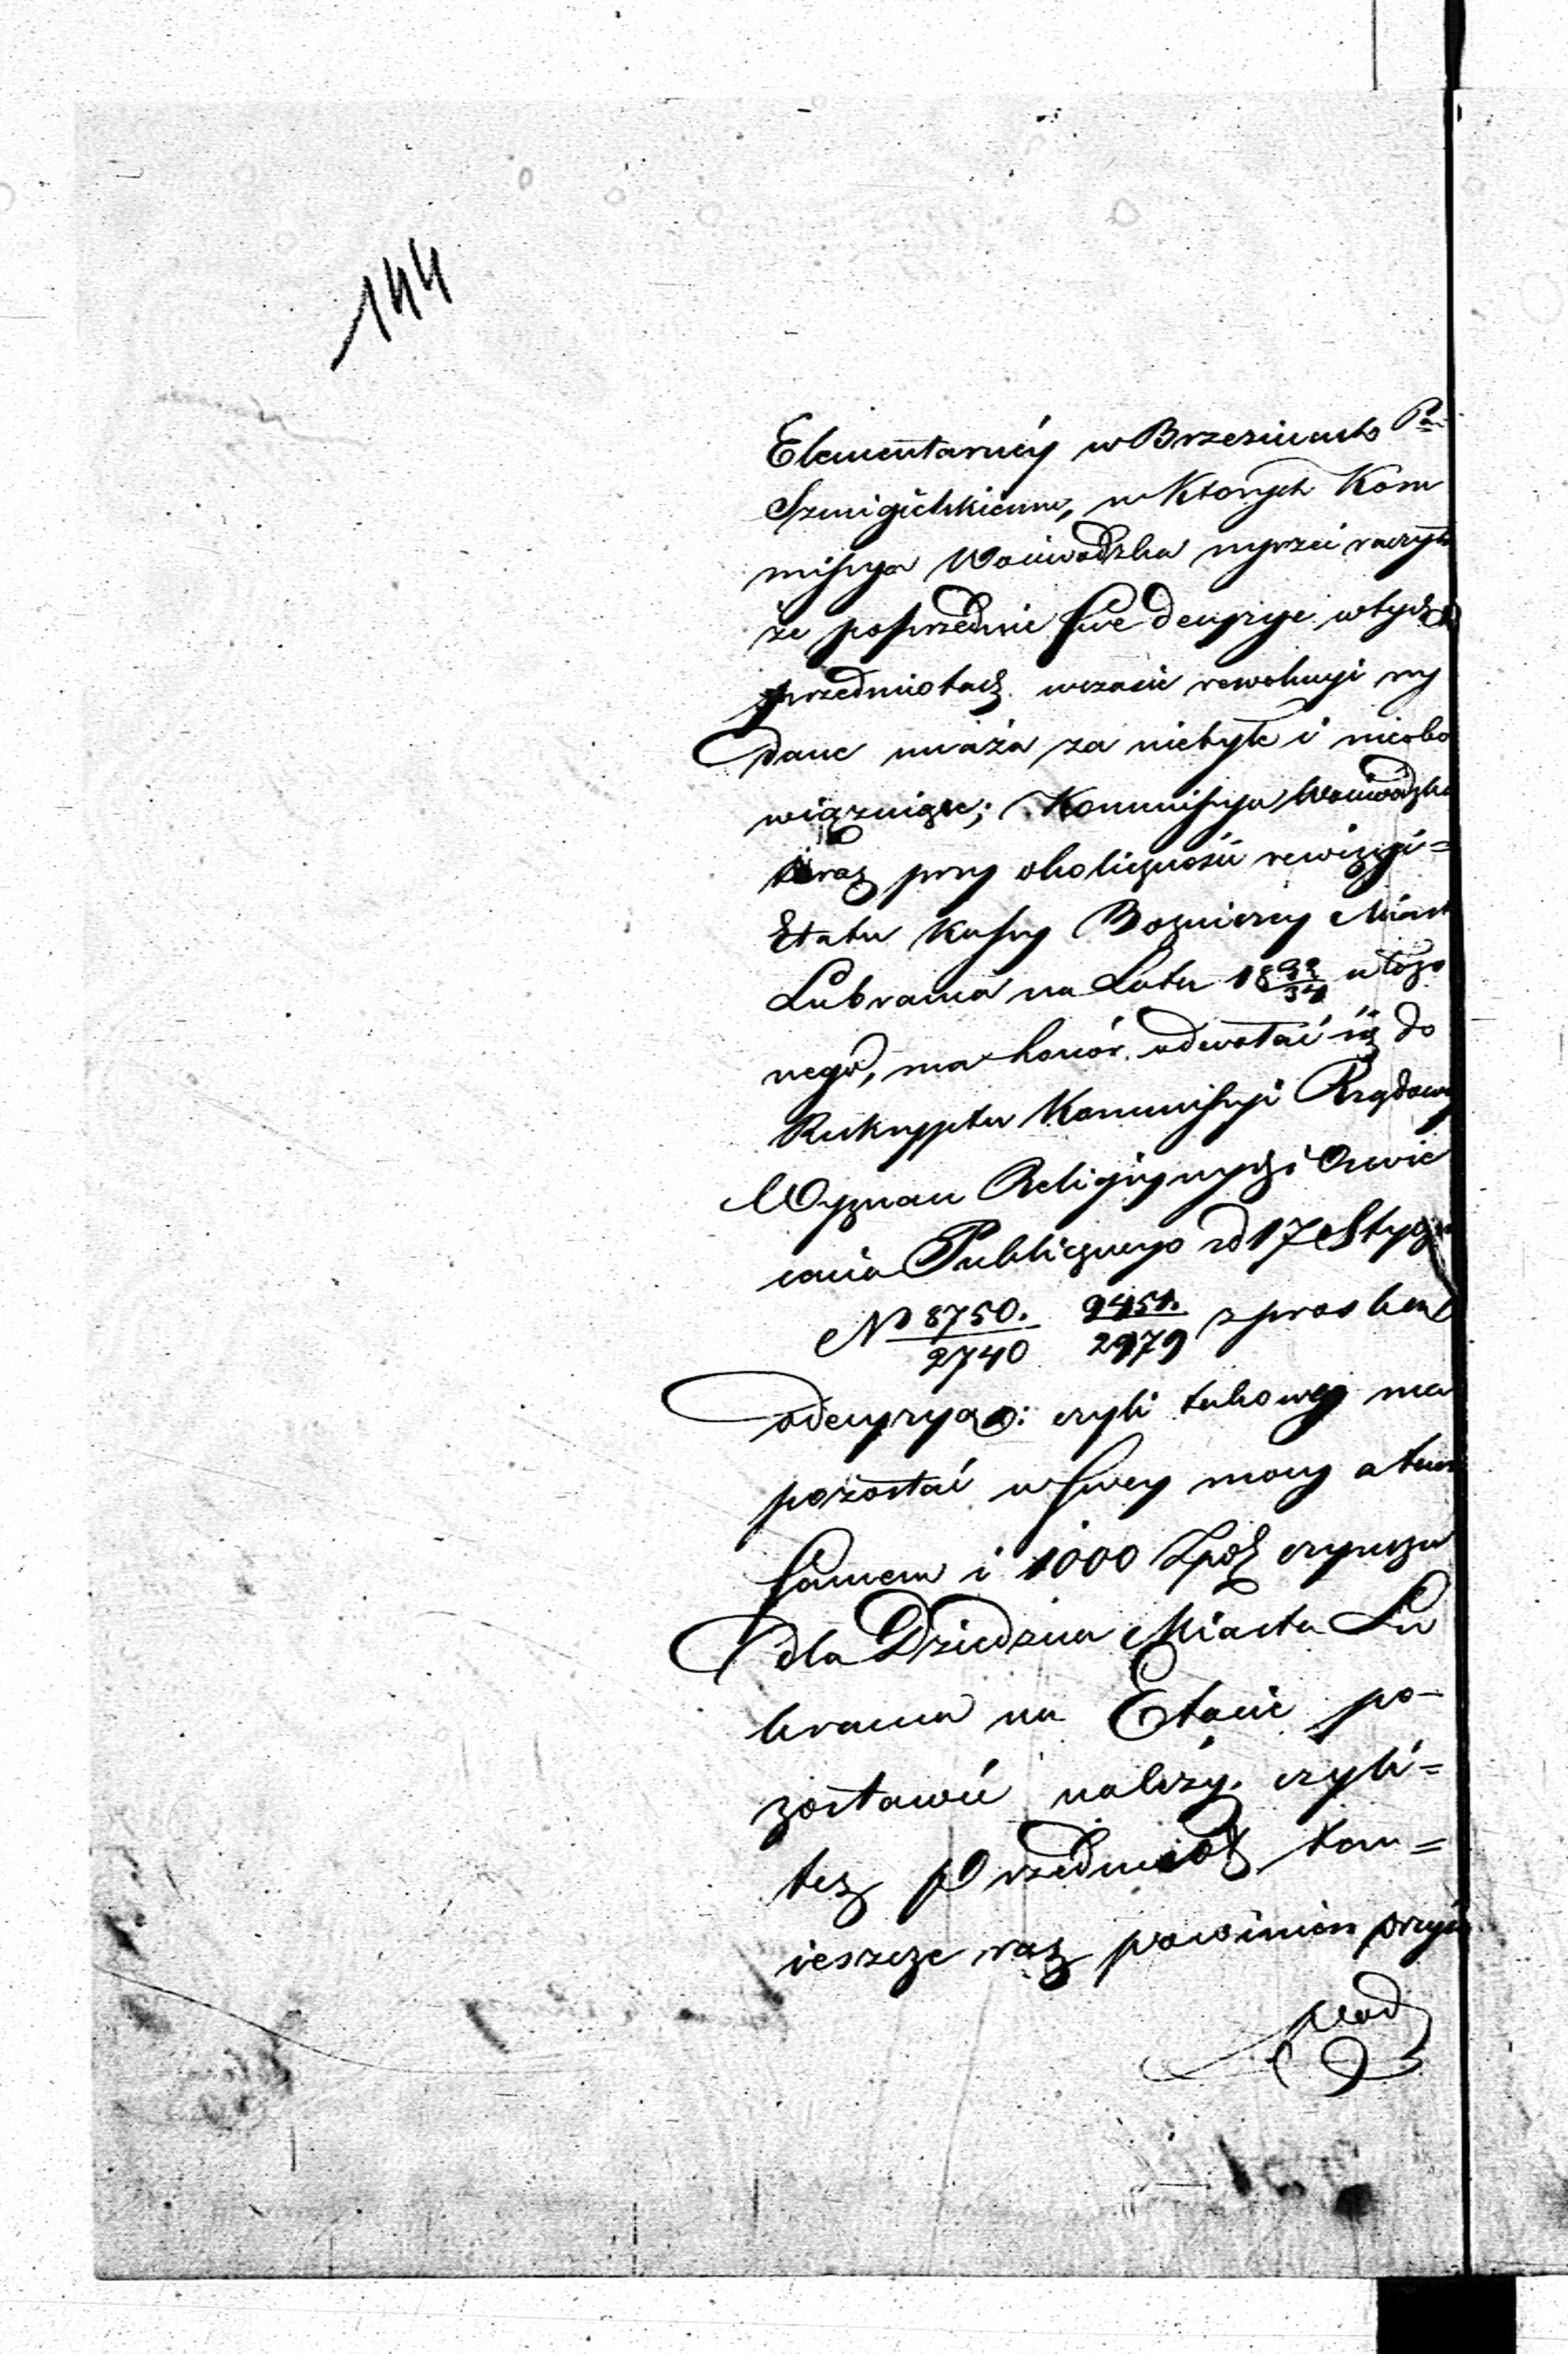 144
Elementarnéy w Brzezinach Pa
Szmigielskiemu, w których Kom
missya Woiewódzka wyrzéc raczyła
że poprzednie swe decyzye w tych
przedmiotach w czasie rewolucyi wy
dane uważa za niebyłe i nieobo
wiązuiące; Kommissya Woiewódzka
teraz przy okoliczności rewizyi =
Etatu Kassy Bożniczey Miasta
Lubrańca na Lata 18 32/34 ułożo
nego, ma honor odwołać się do
Reskryptu Kommissyi Rządowey
Wyznań Religijnych i Oświe
cenia Publicznego od 17 Stycz
No 8750./2740 9451./2979 z prosbą
o decyzyą: czyli takowy ma
pozostać w swey mocy a tem
samem i 1000 Złpol czynszu
dla Dziedzica Miasta Lu
brańca na Etacie po-
zostawić należy. czyli =
też Przedmiot ten =
ieszcze raz powinien przyiść
pod